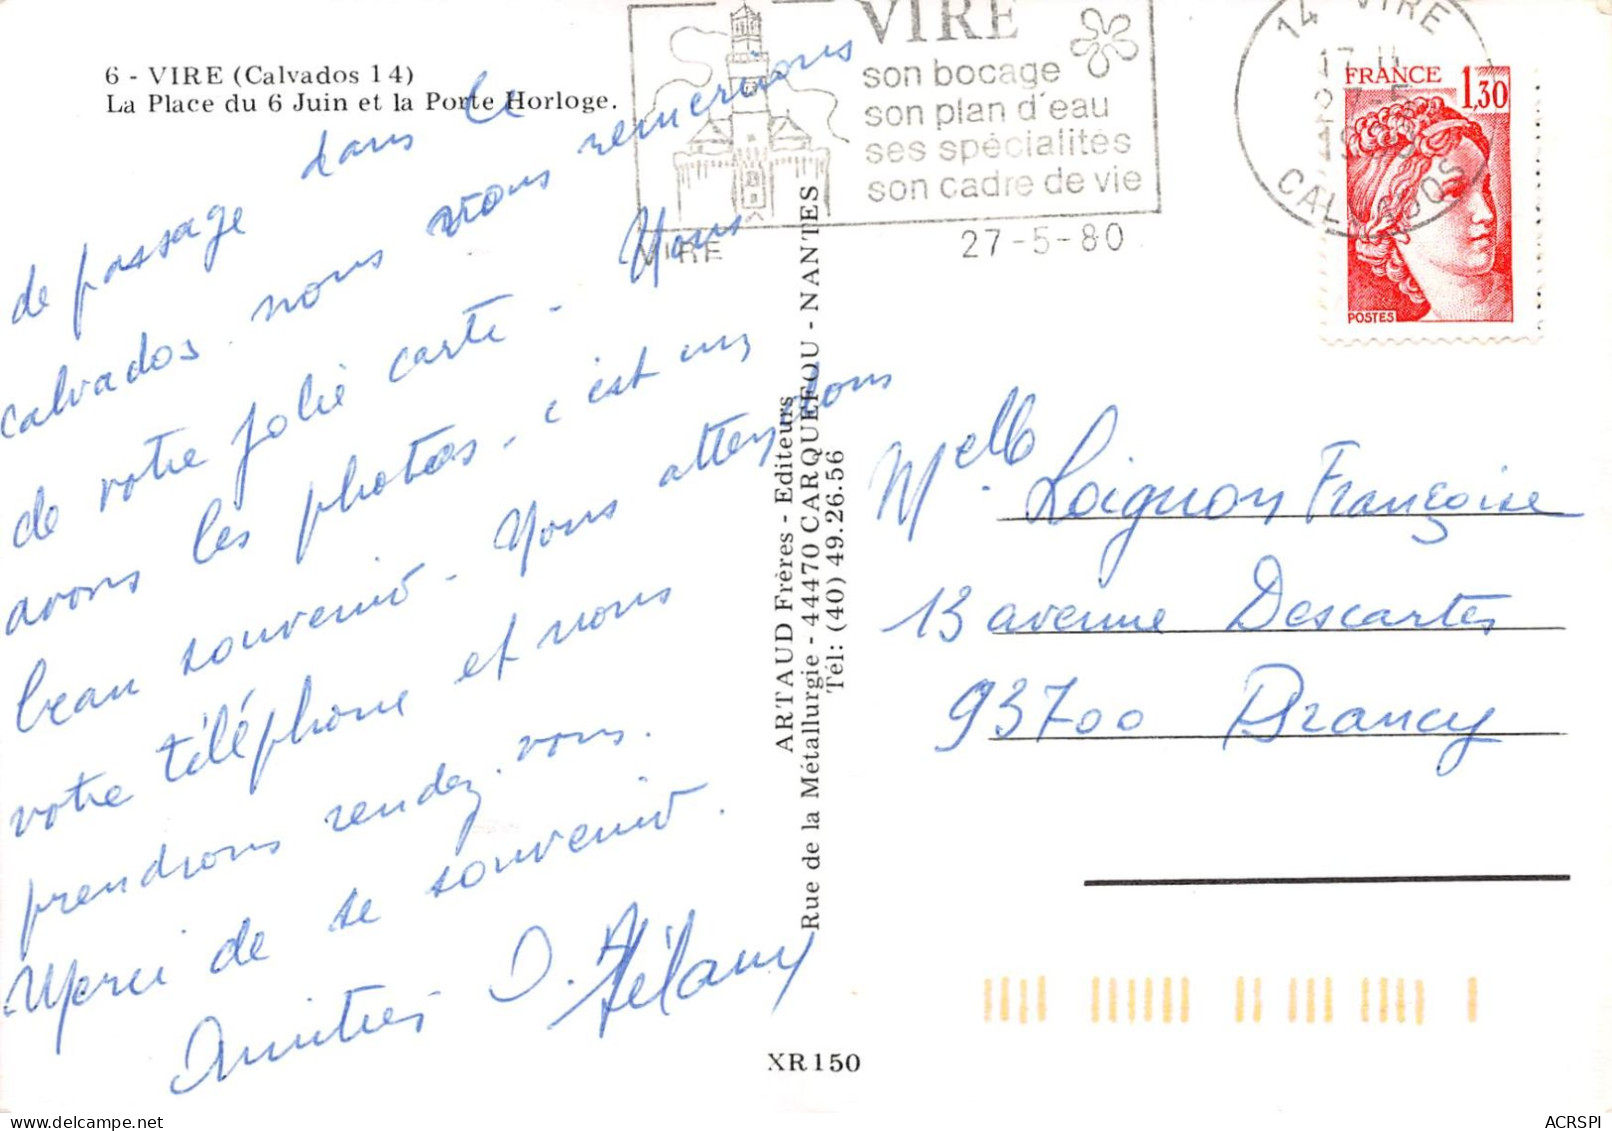 6 - VIRE (Calvados 14)
La Place du 6 Juin et la Porte Horloge.
VIRE
son bocage
son plan d'eau
ses spécialités
son cadre de vie
VIRE
27-5-80
14 VIRE
17 H
27-5
19
CALVADOS
FRANCE
1,30
POSTES
de passage dans le
calvados. nous vous remercions
de votre jolie carte - Nous
avons les photos, c'est un
beau souvenir - Nous attendons
votre téléphone et nous
prendrons rendez-vous.
Merci de se souvenir.
Amitiés
ARTAUD Frères - Editeurs
Rue de la Métallurgie - 44470 CARQUEFOU - NANTES
Tél: (40) 49.26.56
Melle Loignon Françoise
13 avenue Descartes
93700 Drancy
XR150
ACRSPI